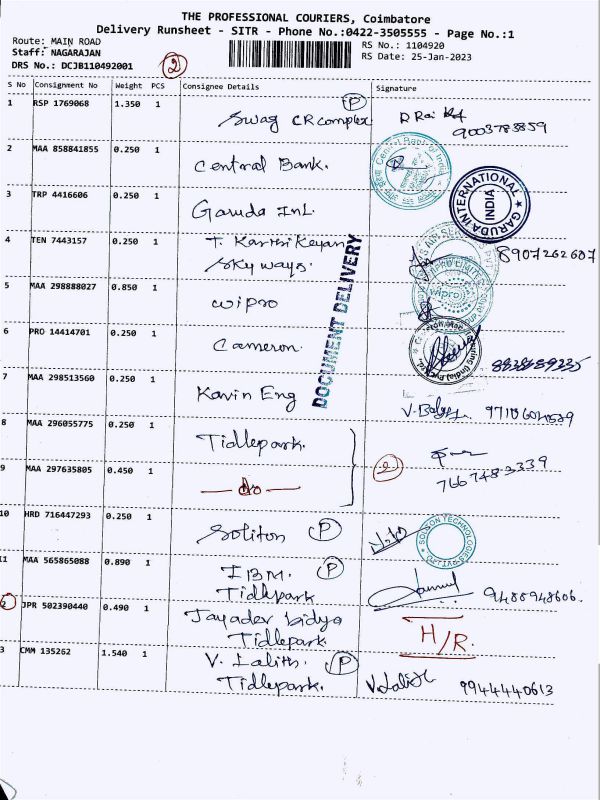 THE PROFESSIONAL COURIERS, Coimbatore
Delivery Runsheet - SITR - Phone No.:0422-3505555 - Page No.:1
Route: MAIN ROAD
RS No.: 1104920
Staff: NAGARAJAN
RS Date: 25-Jan-2023
DRS No.: DCJB110492001
2
S No Consignment No Weight PCS Consignee Details Signature
1 RSP 1769068 1.350 1 Swag CR complex P
9003783859
2 MAA 858841855 0.250 1 Central Bank.
3 TRP 4416606 0.250 1 Garuda Int.
GARUDA INTERNATIONAL
INDIA
4 TEN 7443157 0.250 1 T. Karthikeyan
Sky ways. 8907262607
5 MAA 298888027 0.850 1 wipro
wipro
DOCUMENT DELIVERY
6 PRO 14414701 0.250 1 Cameron.
7 MAA 298513560 0.250 1 Kavin Eng
8 MAA 296055775 0.250 1 Tidlepark.
2
7667483339
9 MAA 297635805 0.450 1 — do —
10 HRD 716447293 0.250 1 Soliton P
SOLITON TECHNOLOGIES
11 MAA 565865088 0.890 1 IBM. P
Tidlepark 9488948606.
2 JPR 502390440 0.490 1 Jayadev Vidya
Tidlepark. H/R.
3 CMM 135262 1.540 1 V. Lalith. P
Tidlepark. V.Lalith 9944440613